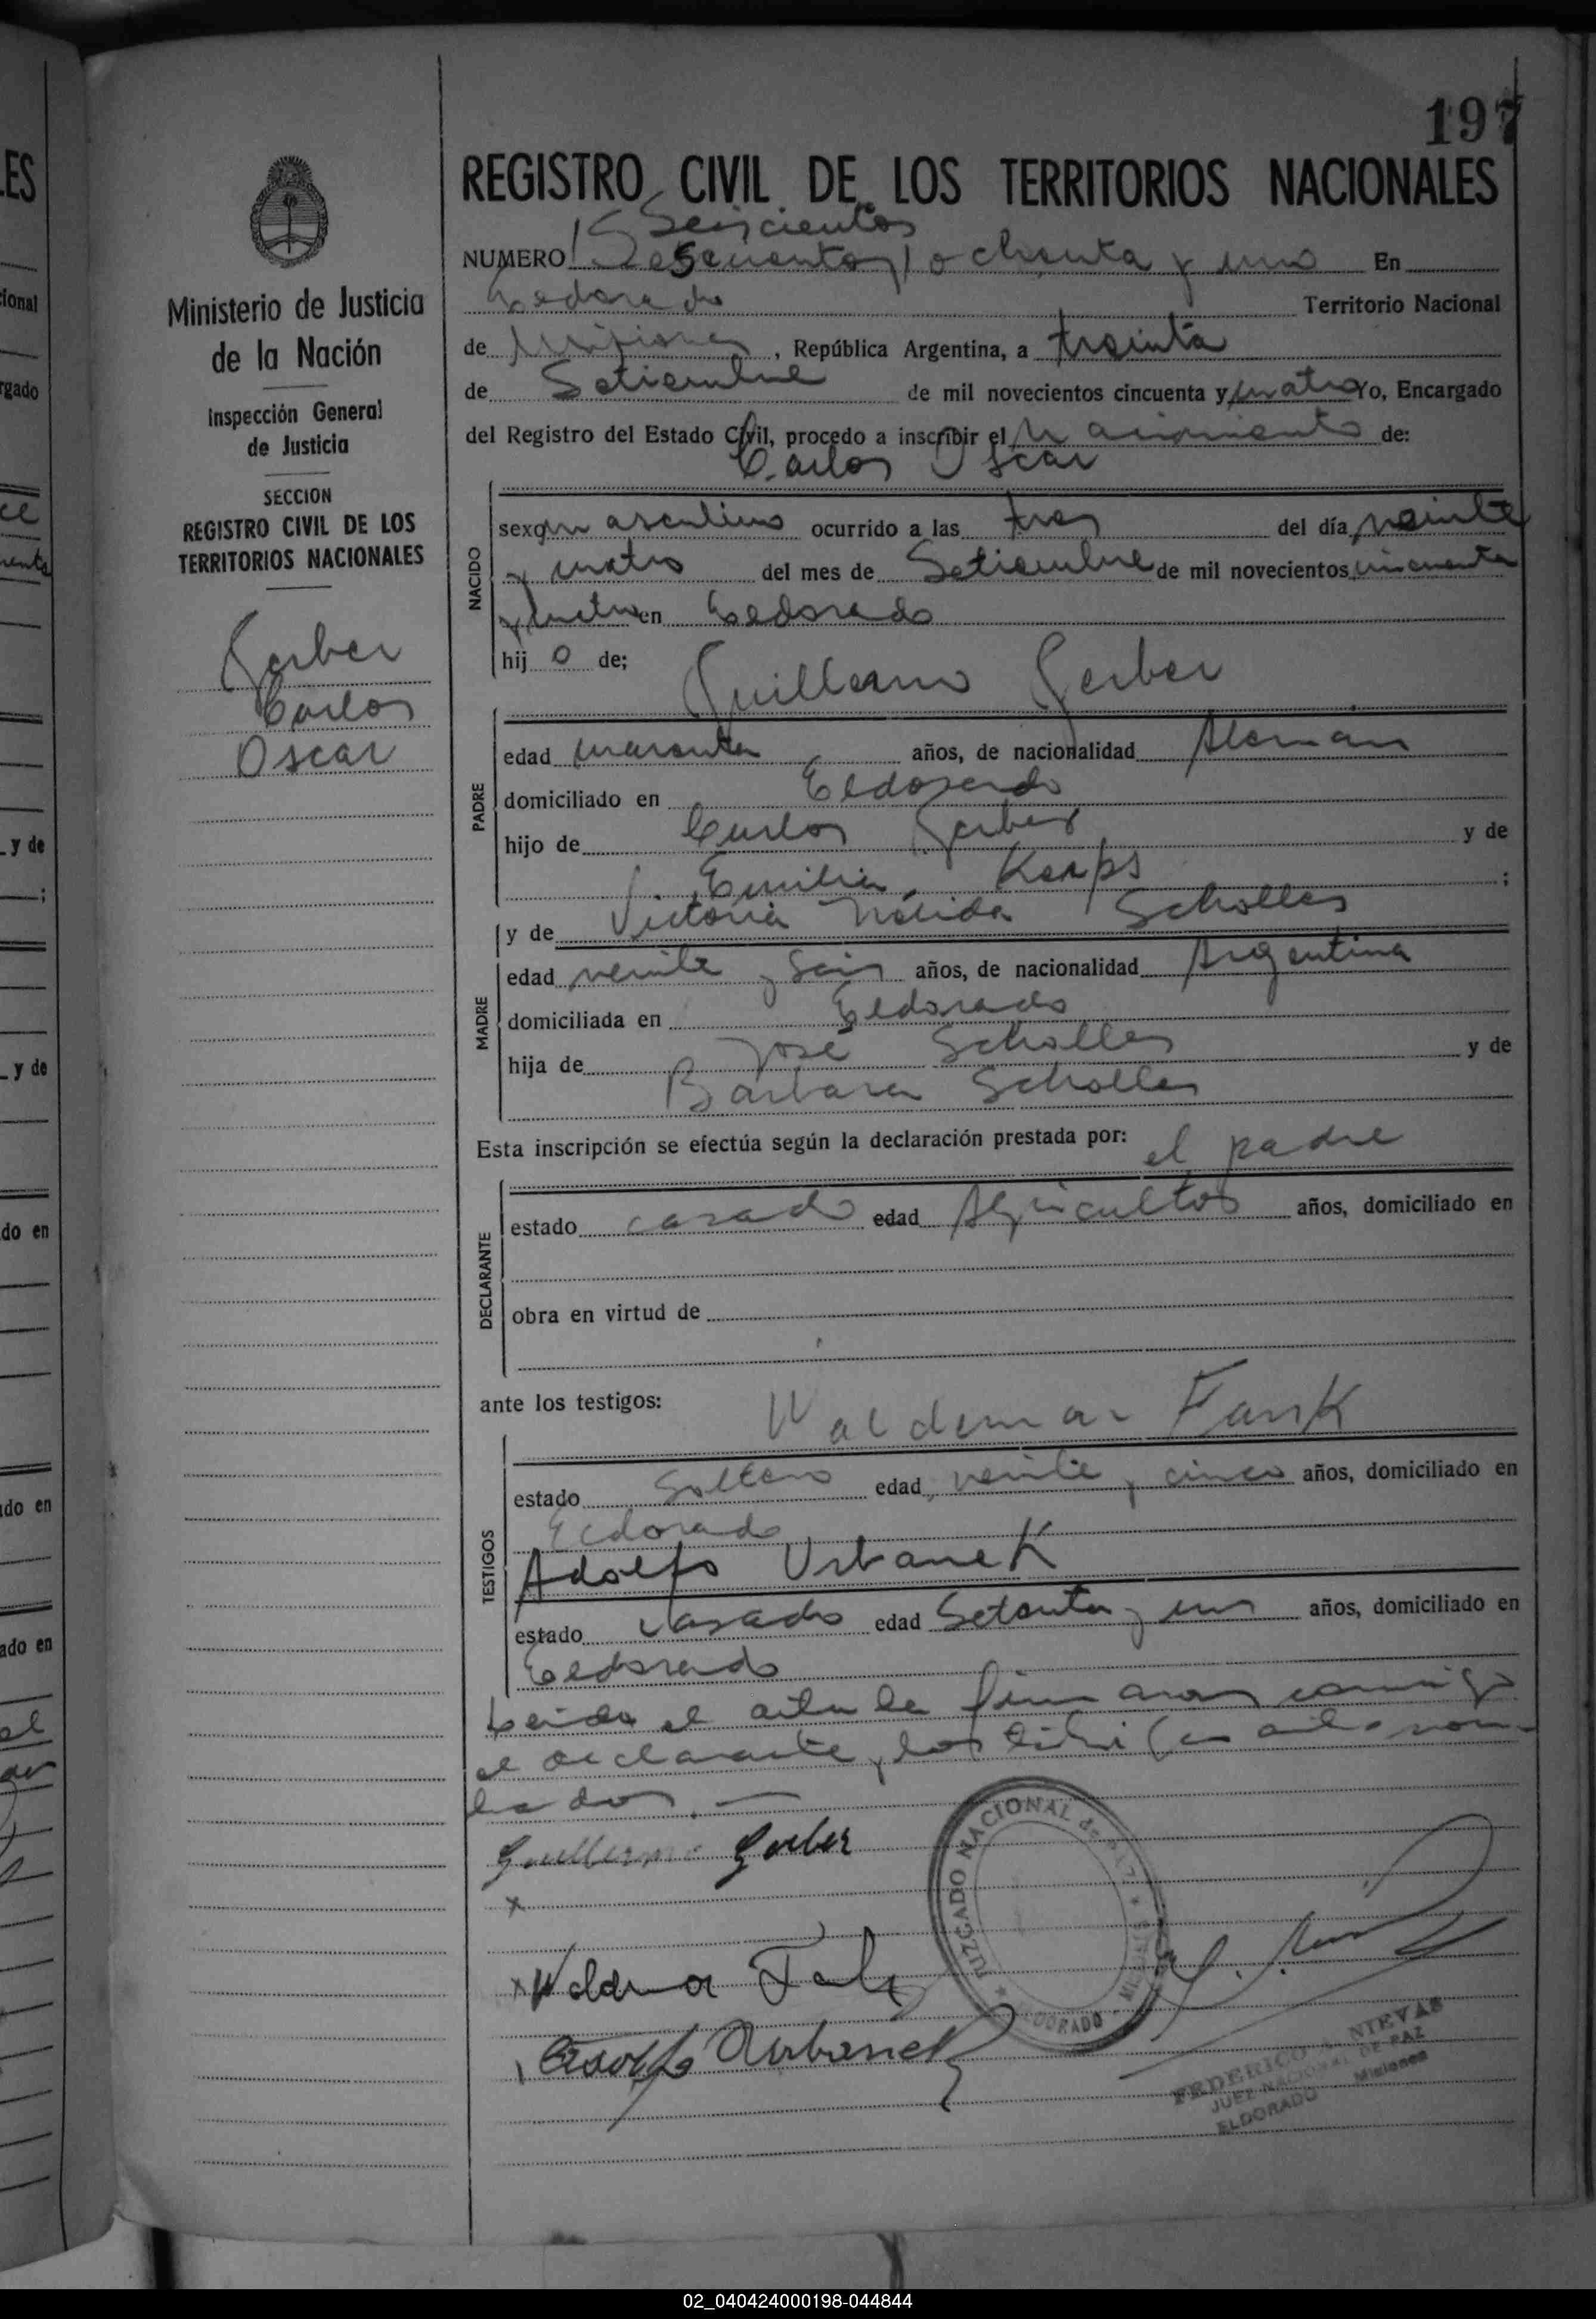 197
REGISTRO CIVIL DE LOS TERRITORIOS NACIONALES
Seiscientos
NUMERO ochenta y uno En
Eldorado Territorio Nacional
de Misiones, República Argentina, a treinta
de Setiembre de mil novecientos cincuenta y cuatro Yo, Encargado
del Registro del Estado Civil, procedo a inscribir el Nacimiento de:
Carlos Oscar
NACIDO
sexo masculino ocurrido a las tres del día veinte
y cuatro del mes de Setiembre de mil novecientos cincuenta
y cuatro en Eldorado
hij o de; Guillermo Gerber
PADRE
edad cuarenta años, de nacionalidad Alemán
domiciliado en Eldorado
hijo de Carlos Gerber y de
Emilia Kerps ;
y de Victoria Nélida Scholles
MADRE
edad veinte y seis años, de nacionalidad Argentina
domiciliada en Eldorado
hija de José Scholles y de
Barbara Scholles
Esta inscripción se efectúa según la declaración prestada por: el padre
DECLARANTE
estado casado edad Agricultor años, domiciliado en
obra en virtud de
ante los testigos: Waldemar Fank
TESTIGOS
estado Soltero edad veinte y cinco años, domiciliado en
Eldorado
Adolfo Urbanek
estado casado edad Setenta y un años, domiciliado en
Eldorado
Leida el acta la firmaron conmigo
el declarante y los testigos antes nom-
brados. —
Guillermo Gerber
x
x
Adolfo Urbanek
JUZGADO NACIONAL de PAZ
ELDORADO - MISIONES
FEDERICO NIEVAS
JUEZ NACIONAL DE PAZ
ELDORADO Misiones
Ministerio de Justicia
de la Nación
Inspección General
de Justicia
SECCION
REGISTRO CIVIL DE LOS
TERRITORIOS NACIONALES
Gerber
Carlos
Oscar
ES
y de
;
y de
do en
do en
ado en
02_040424000198-044844